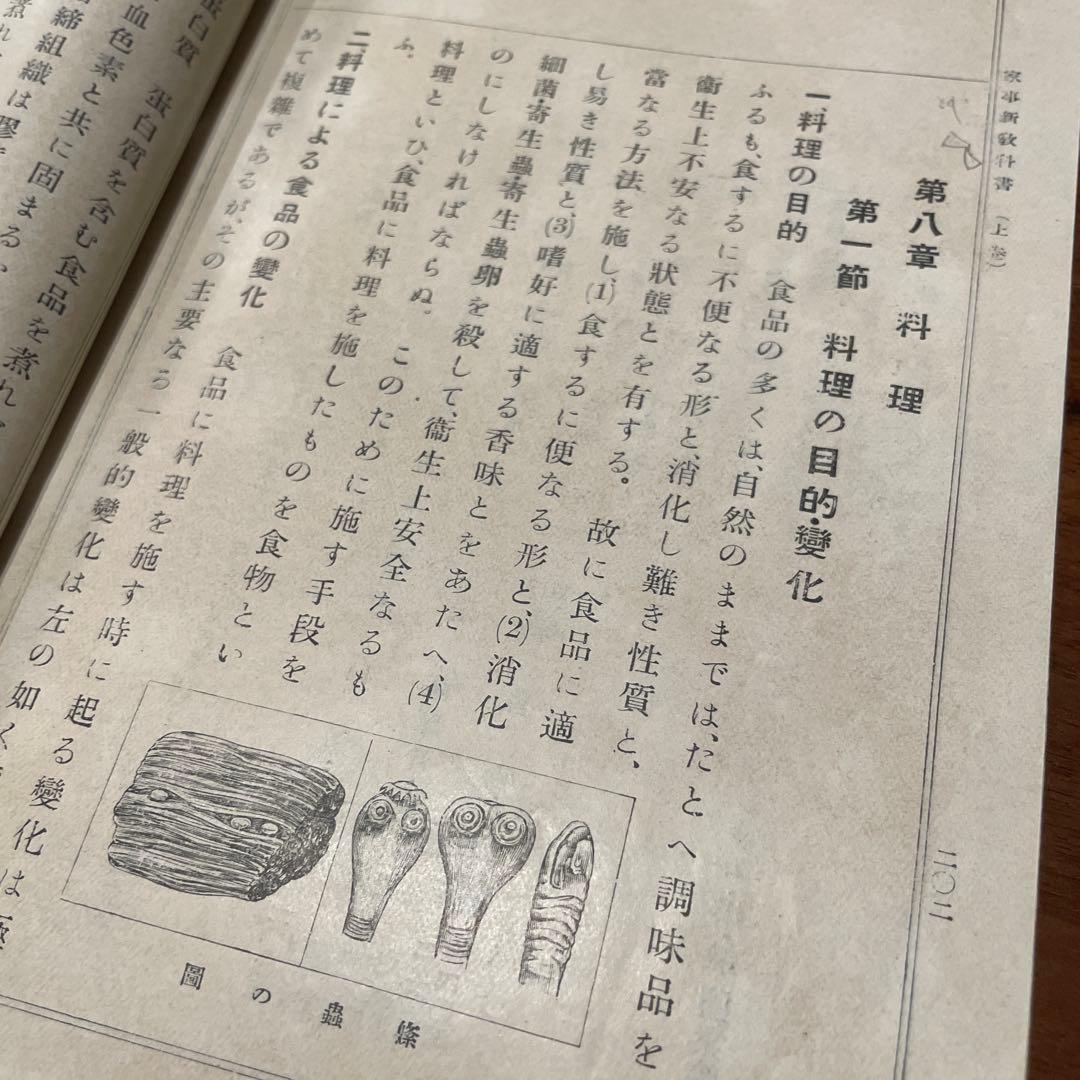 家事新敎科書 (上卷)
二〇二
第八章 料理
第一節 料理の目的・變化
一、料理の目的 食品の多くは、自然のままでは、たとへ調味品を
ふるも、食するに不便なる形と、消化し難き性質と、
衞生上不安なる狀態とを有する。 故に食品に適
當なる方法を施し、(1)食するに便なる形と、(2)消化
し易き性質と、(3)嗜好に適する香味とをあたへ、(4)
細菌・寄生蟲・寄生蟲卵を殺して、衞生上安全なるも
のにしなければならぬ。 このために施す手段を
料理といひ、食品に料理を施したものを食物とい
ふ。
二、料理による食品の變化 食品に料理を施す時に起る變化は極
めて複雜であるが、その主要なる一般的變化は左の如く
絛蟲の圖
蛋白質 蛋白質を含む食品を煮れ
血色素と共に固まる、
締組織は膠
煮れ